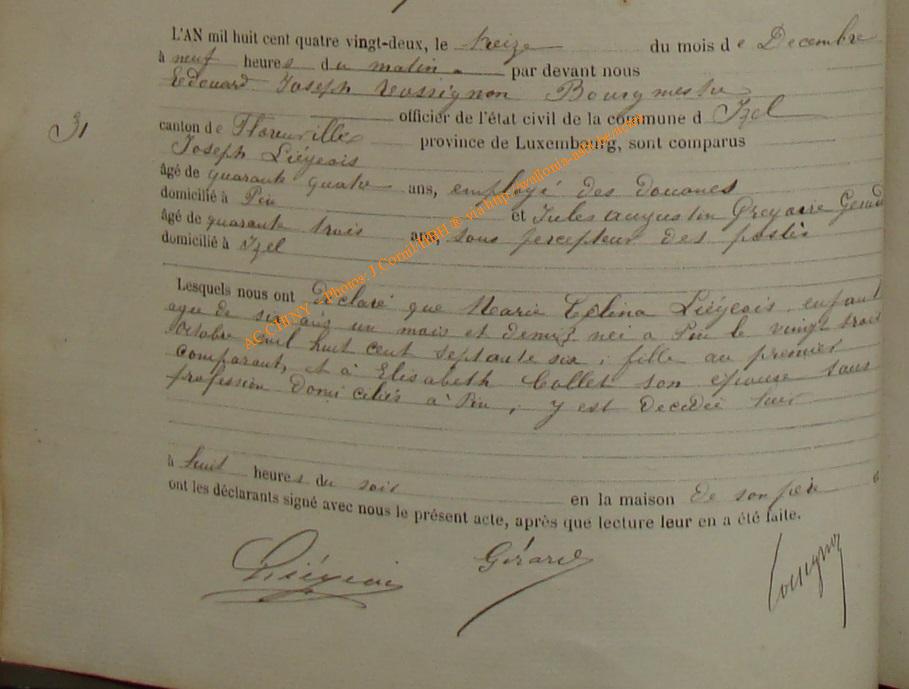 L'AN mil huit cent quatre vingt-deux, le treize du mois de Decembre
à neuf heures du matin par devant nous
Edouard Joseph Rossignon Bourgmestre
officier de l'état civil de la commune d Izel
31
canton de Florenville province de Luxembourg, sont comparus
Joseph Liégeois
âgé de quarante quatre ans, employé des douanes
domicilié à Pin et Jules Augustin Gregoire Gerard
âgé de quarante trois ans, sous percepteur des postes
domicilié à Izel
Lesquels nous ont déclaré que Marie Liégeois, enfant
agée de six ans un mois et demi, née à Pin le vingt trois
Octobre mil huit cent septante six, fille au premier
comparant, et à Elisabeth Collet son épouse sans
profession domiciliés à Pin, y est décédée hier
à huit heures du soir en la maison de son père
ont les déclarants signé avec nous le présent acte, après que lecture leur en a été faite.
Liégeois Gérard Rossignon
AC CHINY - Photos J.Cornil/BBH ® via http